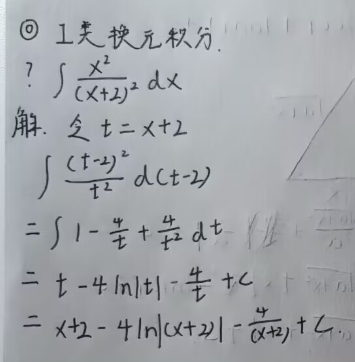 ◎ I类换元积分.
? ∫ x²/(x+2)² dx
解. 令 t = x+2
∫ (t-2)²/t² d(t-2)
= ∫ 1 - 4/t + 4/t² dt
= t - 4 ln|t| - 4/t + C
= x+2 - 4 ln|(x+2)| - 4/(x+2) + C.